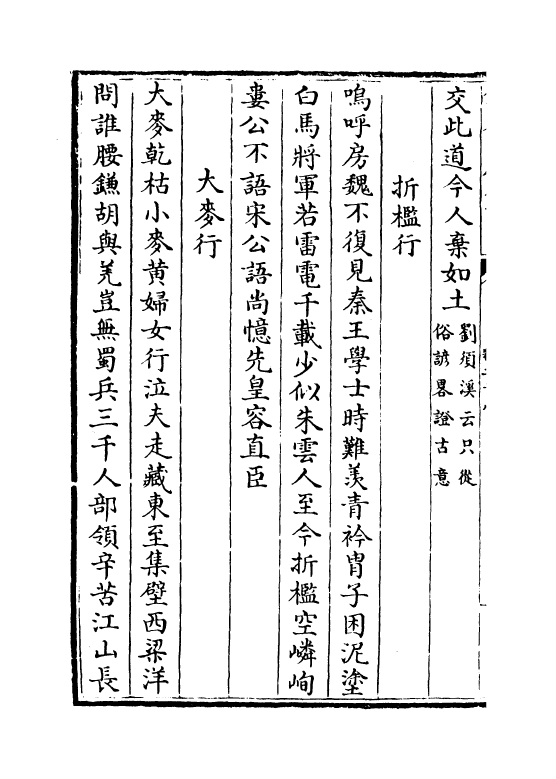 交此道今人棄如土劉須溪云只從
俗諺畧證古意
折檻行
嗚呼房魏不復見秦王學士時難羡青衿胄子困泥塗
白馬將軍若雷電千載少似朱雲人至今折檻空嶙峋
婁公不語宋公語尚憶先皇容直臣
大麥行
大麥乾枯小麥黃婦女行泣夫走藏東至集壁西梁洋
問誰腰鎌胡與羌豈無蜀兵三千人部領辛苦江山長